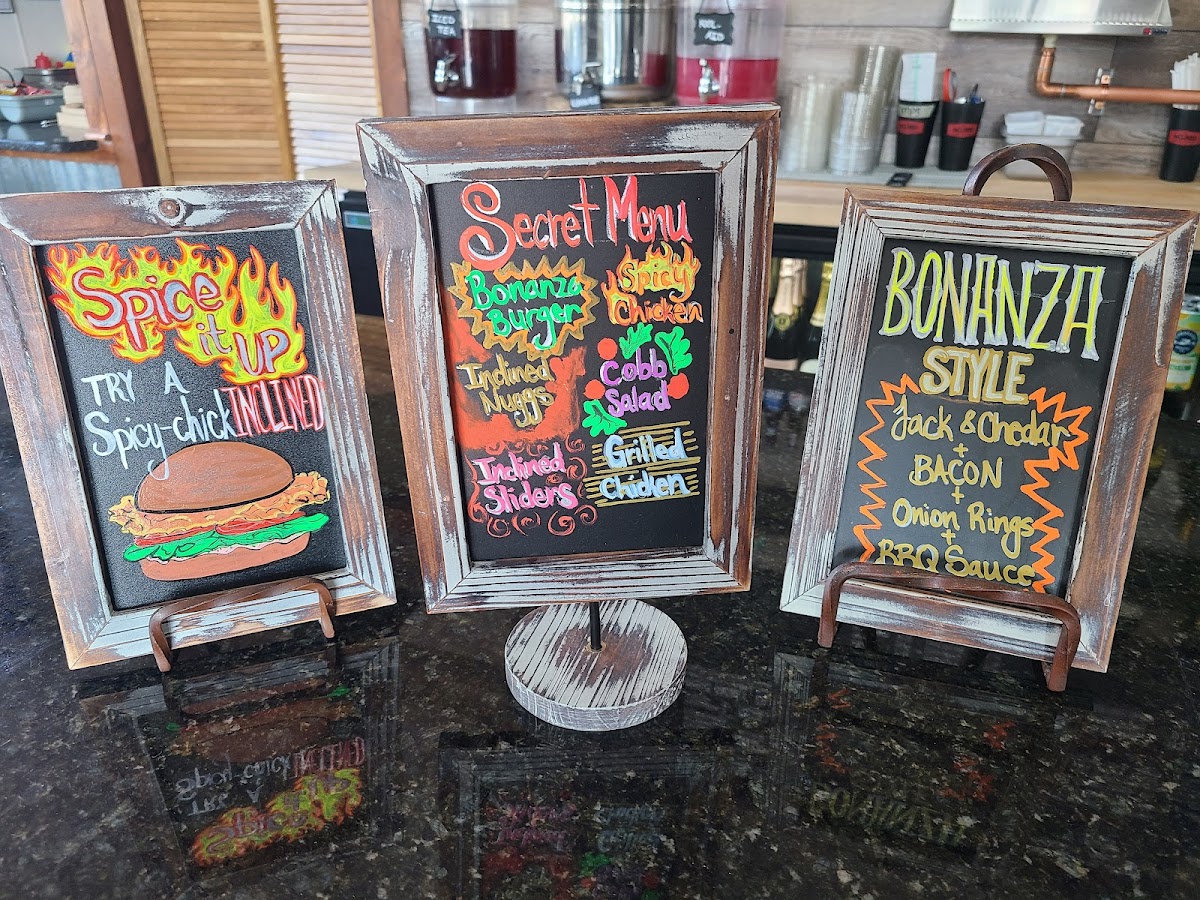 ICED
TEA
KOOL-
AID
Spice
it UP
TRY A
Spicy-chick INCLINED
Secret Menu
Bonanza
Burger
Spicy
Chicken
Inclined
Nuggs
Cobb
Salad
Inclined
Sliders
Grilled
Chicken
BONANZA
STYLE
Jack & Chedar
+
BACON
+
Onion Rings
+
BBQ Sauce